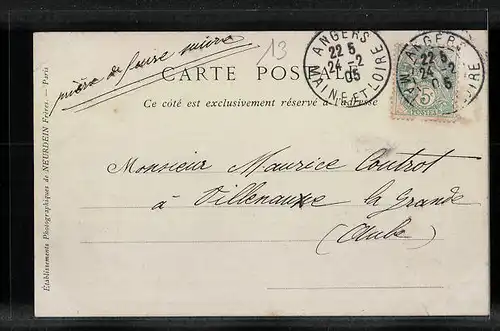 prière de faire suivre
13
CARTE POSTALE
Ce côté est exclusivement réservé à l'adresse
ANGERS
22 5
24 -2
05
MAINE-ET-LOIRE
ANGERS
22 5
24 -2
05
5
POSTES
Monsieur Maurice Coutrot
à Villenauxe la Grande
(Aube)
Établissements Photographiques de NEURDEIN Frères. — Paris